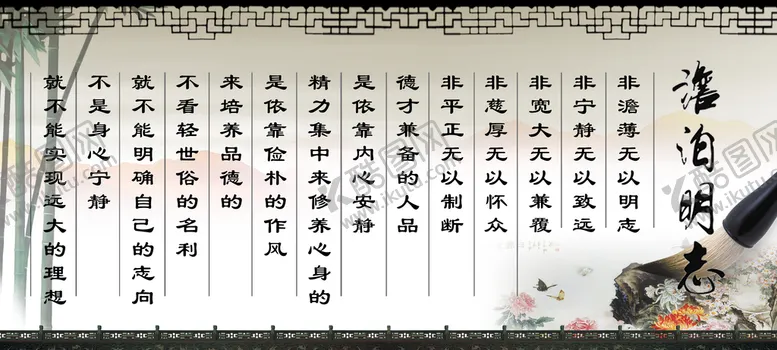 澹泊明志
非澹薄无以明志
非宁静无以致远
非宽大无以兼覆
非慈厚无以怀众
非平正无以制断
德才兼备的人品
是依靠内心安静
精力集中来修养心身的
是依靠俭朴的作风
来培养品德的
不看轻世俗的名利
就不能明确自己的志向
不是身心宁静
就不能实现远大的理想